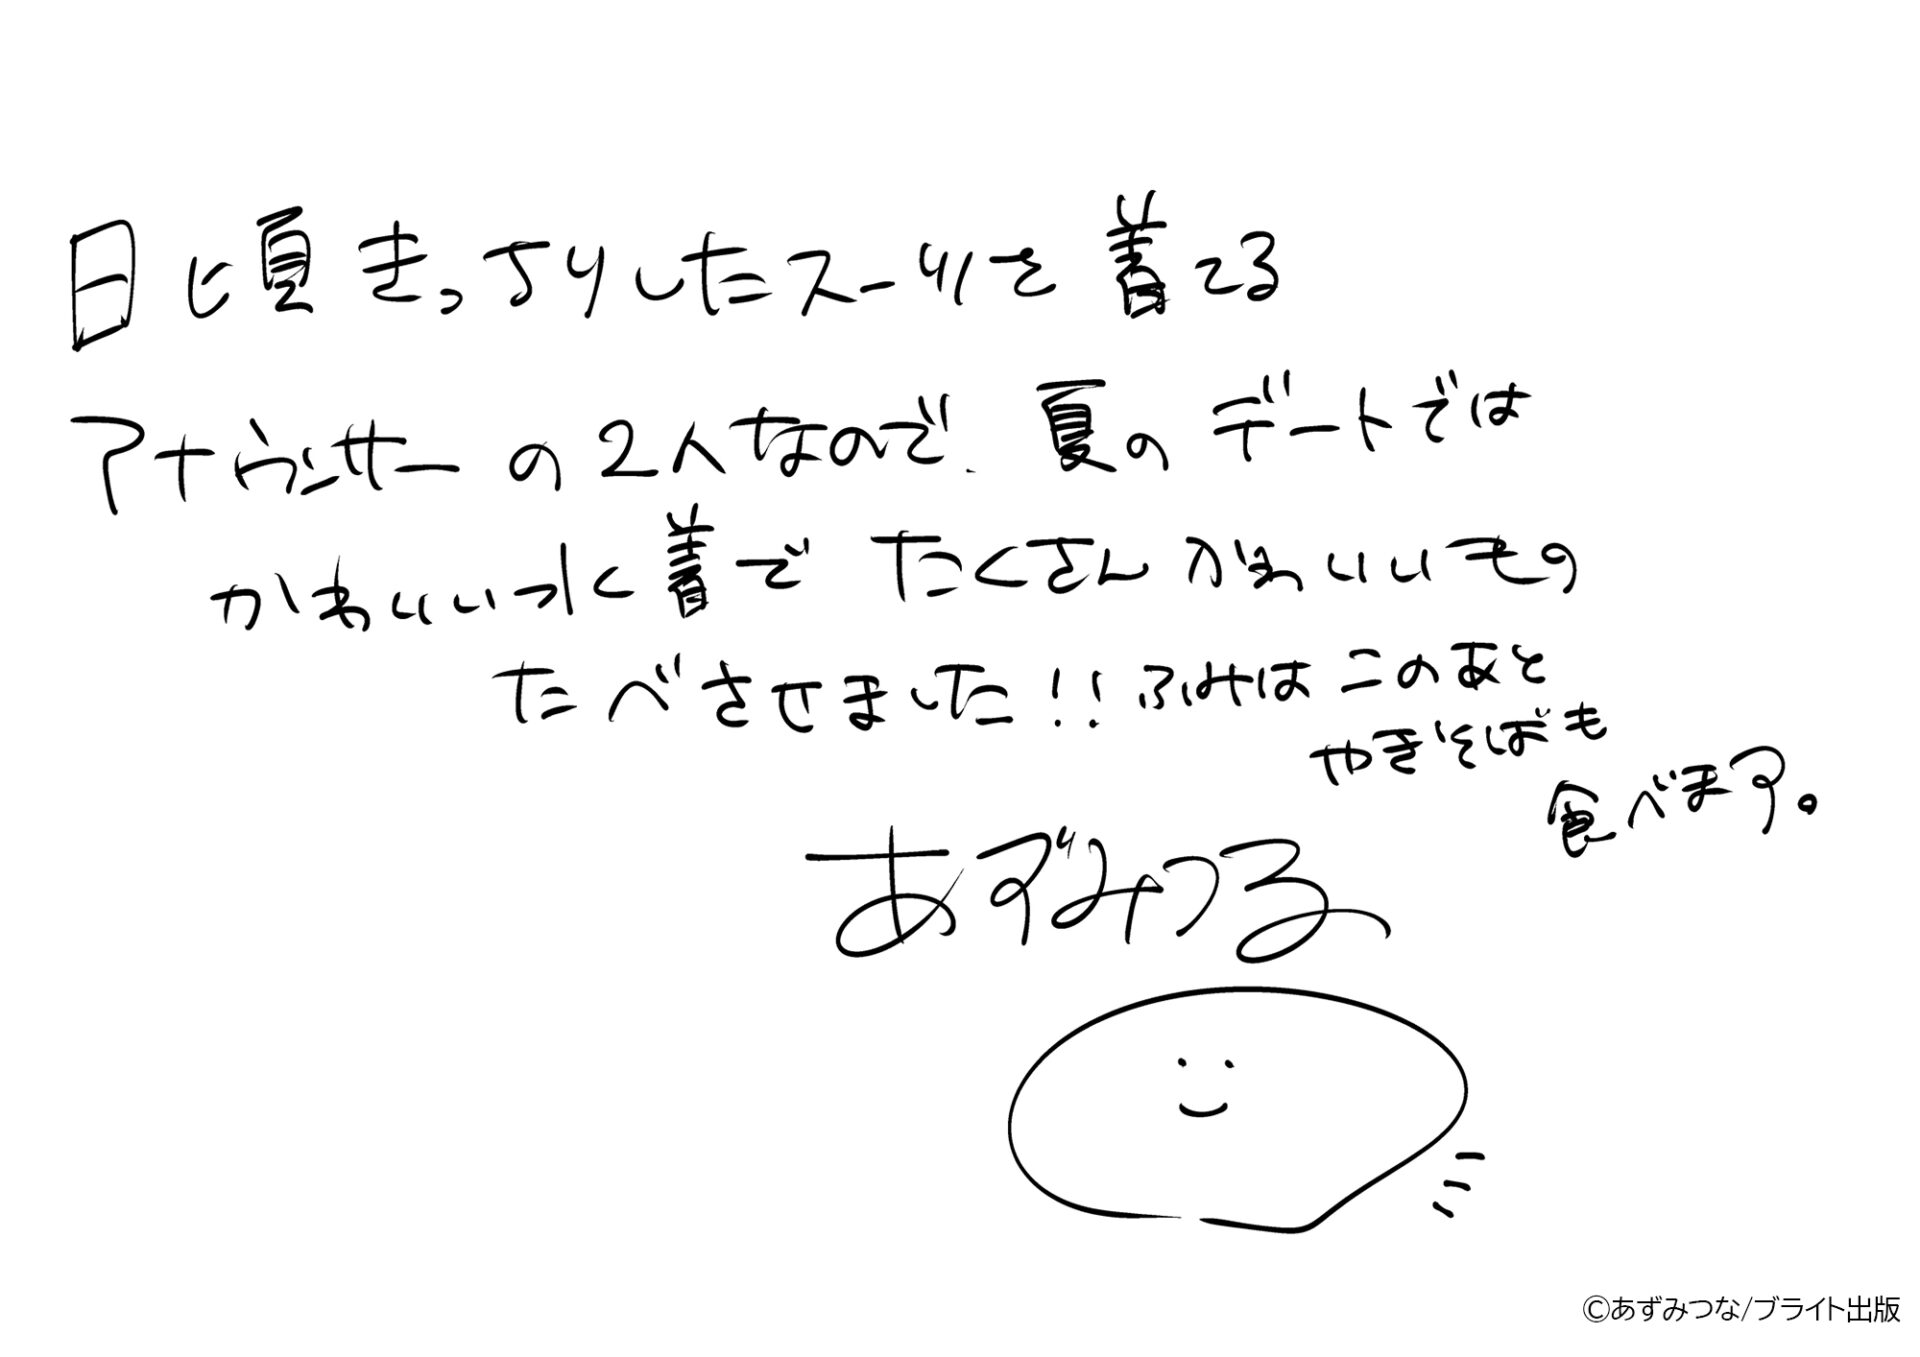 日頃きっちりしたスーツを着てる
アナウンサーの2人なので、夏のデートでは
かわいい水着でたくさんかわいいもの
たべさせました!!ふみはこのあと
やきそばも
食べます。
あずみつな
©あずみつな/ブライト出版